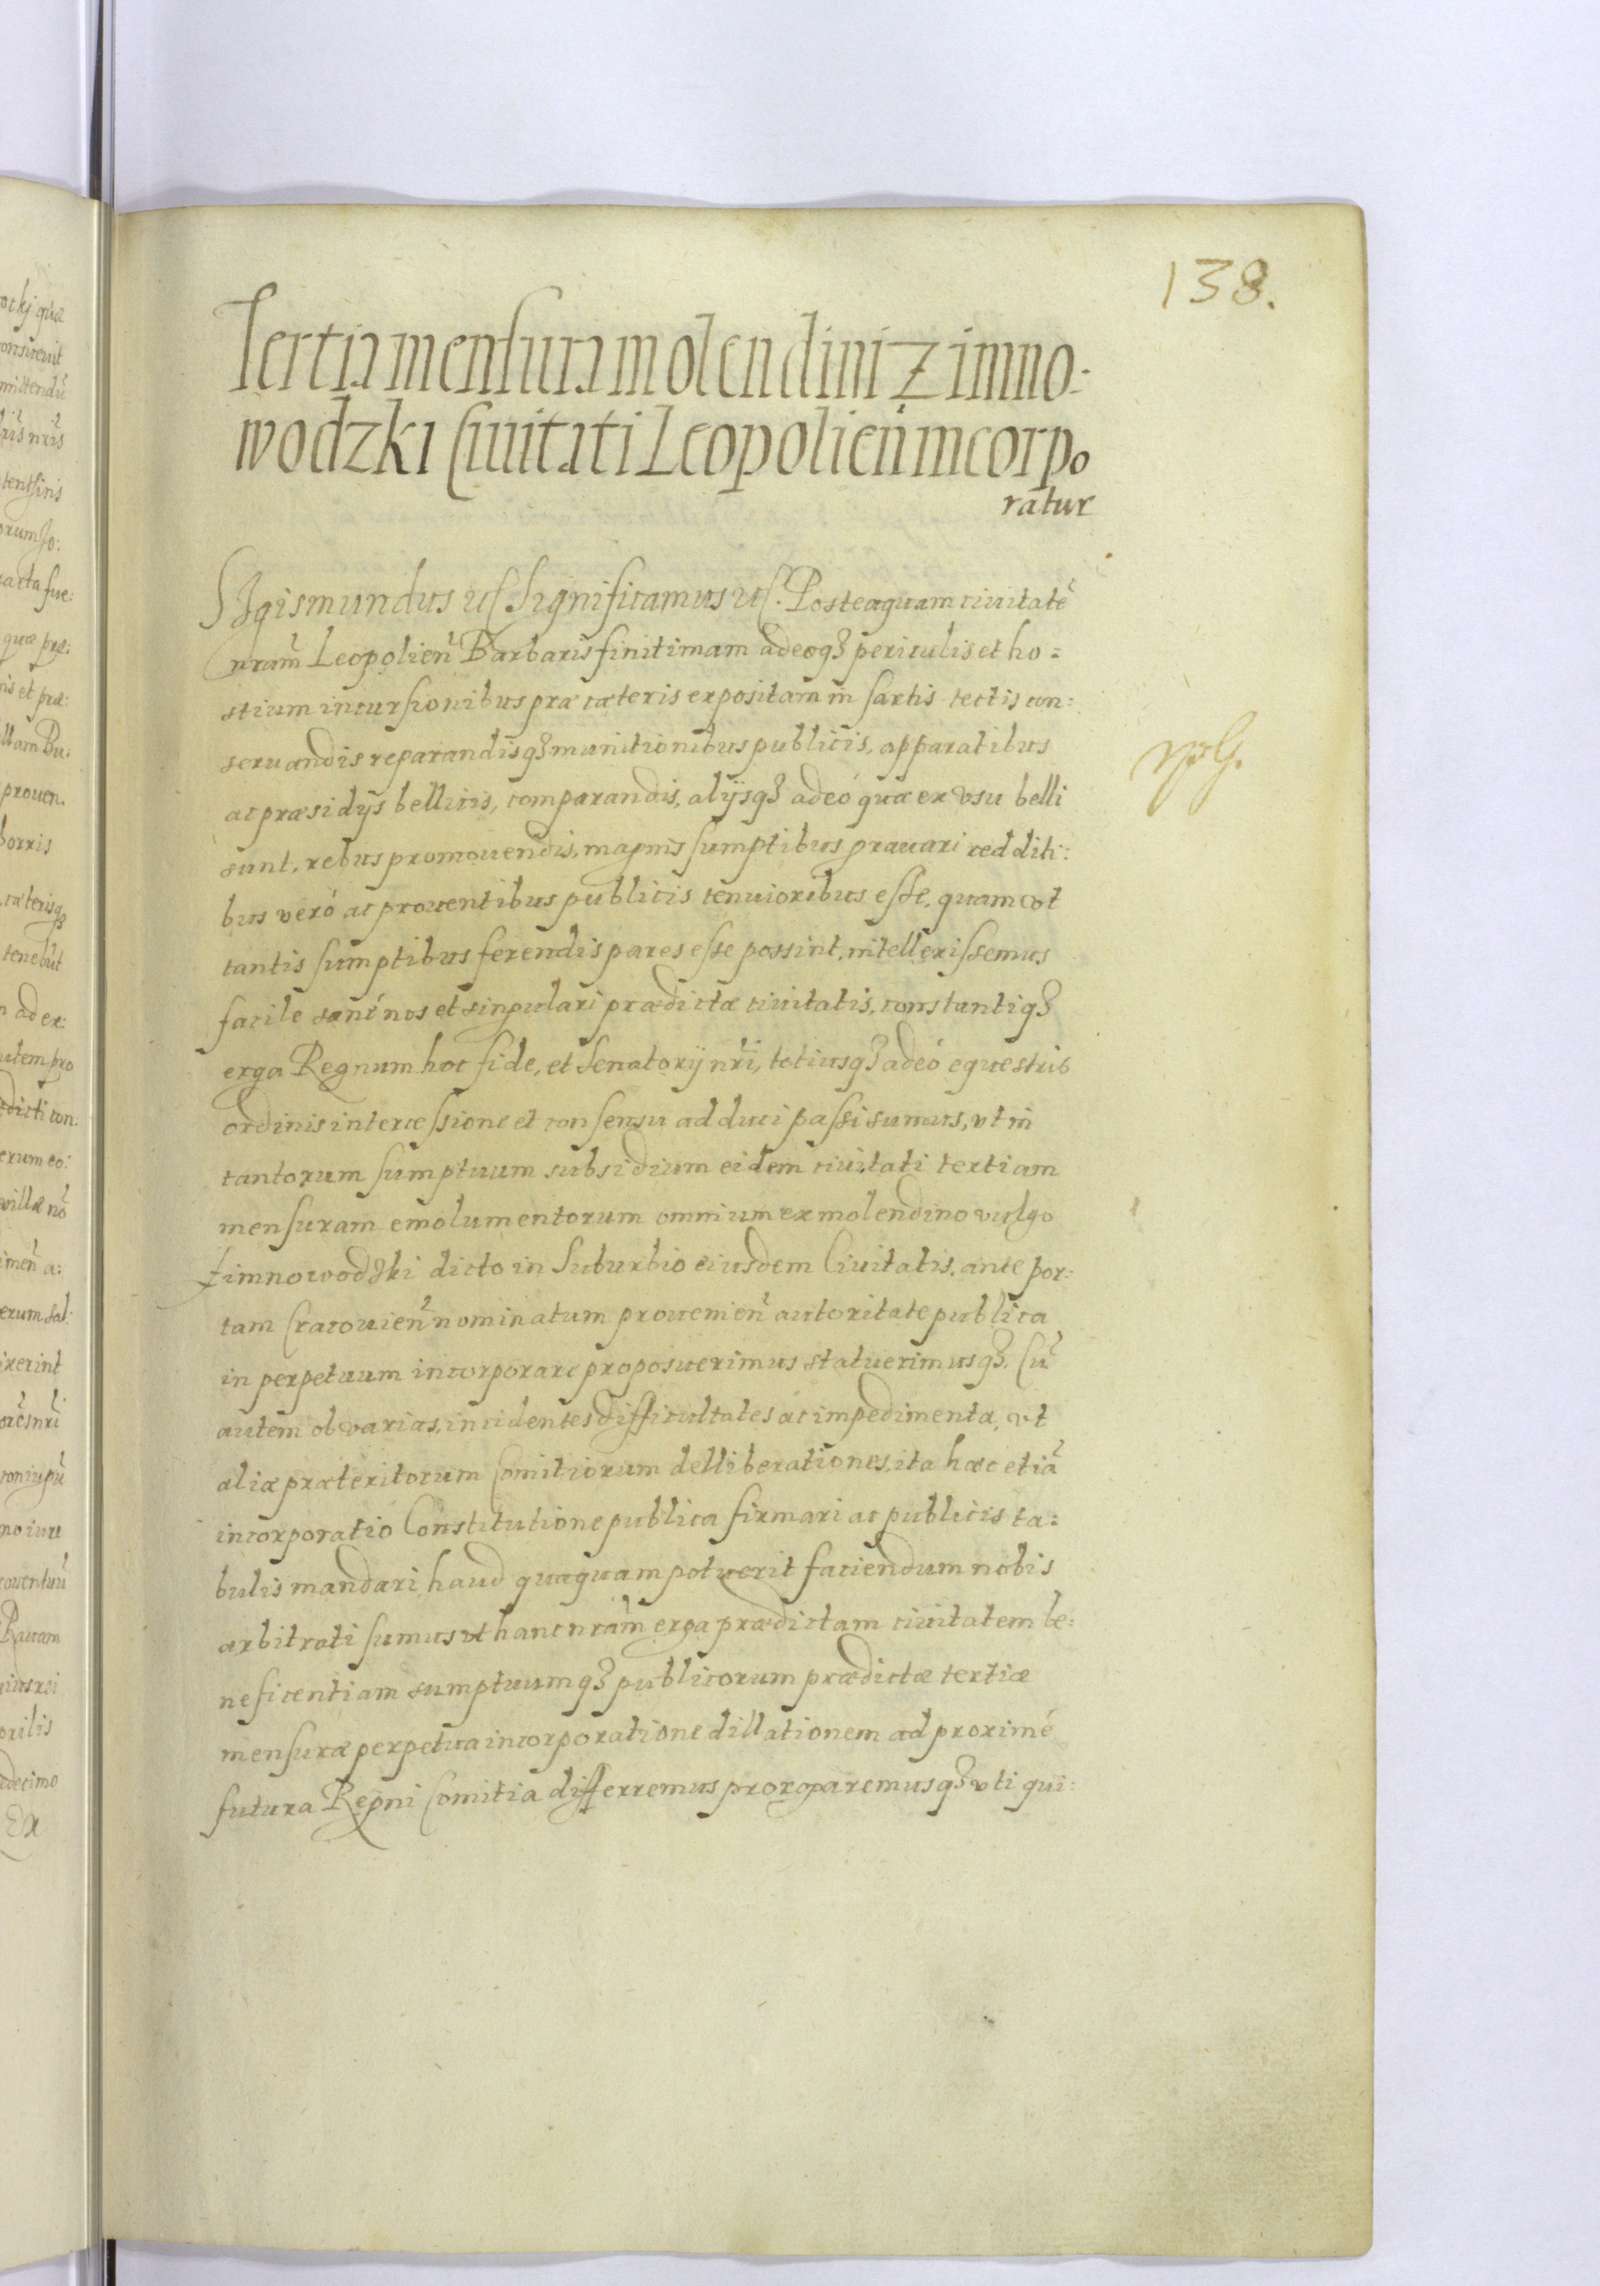 138.
Tertia mensura molendini Zimno-
wodzki Ciuitati Leopolien̄ incorpo
ratur
SIgismundus etc Significamus etc. Posteaquam ciuitatē
nram̄ Leopolien̄ Barbaris finitimam adeoqꝫ periculis et ho=
stium incursionibus præ cæteris expositam in sartis tectis con:
seruandis reparandisqꝫ munitionibus publicis, apparatibus
ac præsidÿs bellicis, comparandis, alÿsqꝫ adeó quæ ex vsu belli
sunt, rebus promouendis, magnis sumptibus grauari redditi:
bus veró ac prouentibus publicis tenuioribus esse, quam vt
tantis sumptibus ferendis pares esse possint, intellexissemus
facile sané nos et singulari prædictæ ciuitatis, constantiqꝫ
erga Regnum hoc fide, et Senatorÿ nrī, totiusqꝫ adeó equestris
ordinis intercessione et consensu adduci passi sumus, vt in
tantorum sumptuum subsidium eidem ciuitati tertiam
mensuram emolumentorum omnium ex molendino vulgo
Zimnowodzki dicto in Suburbio eiusdem Ciuitatis, ante por:
tam Cracouien̄ nominatum prouenien̄ autoritate publica
in perpetuum incorporare proposuerimus statuerimusqꝫ. Cū
autem ob varias, incidentes difficultates ac impedimenta, vt
aliæ præteritorum Comitiorum delliberationes, ita hæc etiā
incorporatio Constitutione publica firmari ac publicis ta:
bulis mandari haud quaquam potuerit faciendum nobis
arbitrati sumus vt hanc nram̄ erga prædictam ciuitatem be:
neficentiam sumptuumqꝫ publicorum prædictæ tertiæ
mensuræ perpetua incorporatione dillationem ad proximé
futura Regni Comitia differremus prorogaremusqꝫ vti qui: